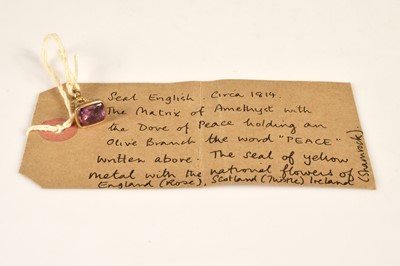 Seal English Circa 1814
The Matrix of Amethyst with
the Dove of Peace holding an
Olive Branch the word "PEACE"
written above. The seal of yellow
metal with the national flowers of
England (Rose), Scotland (Thistle) Ireland
(Shamrock)